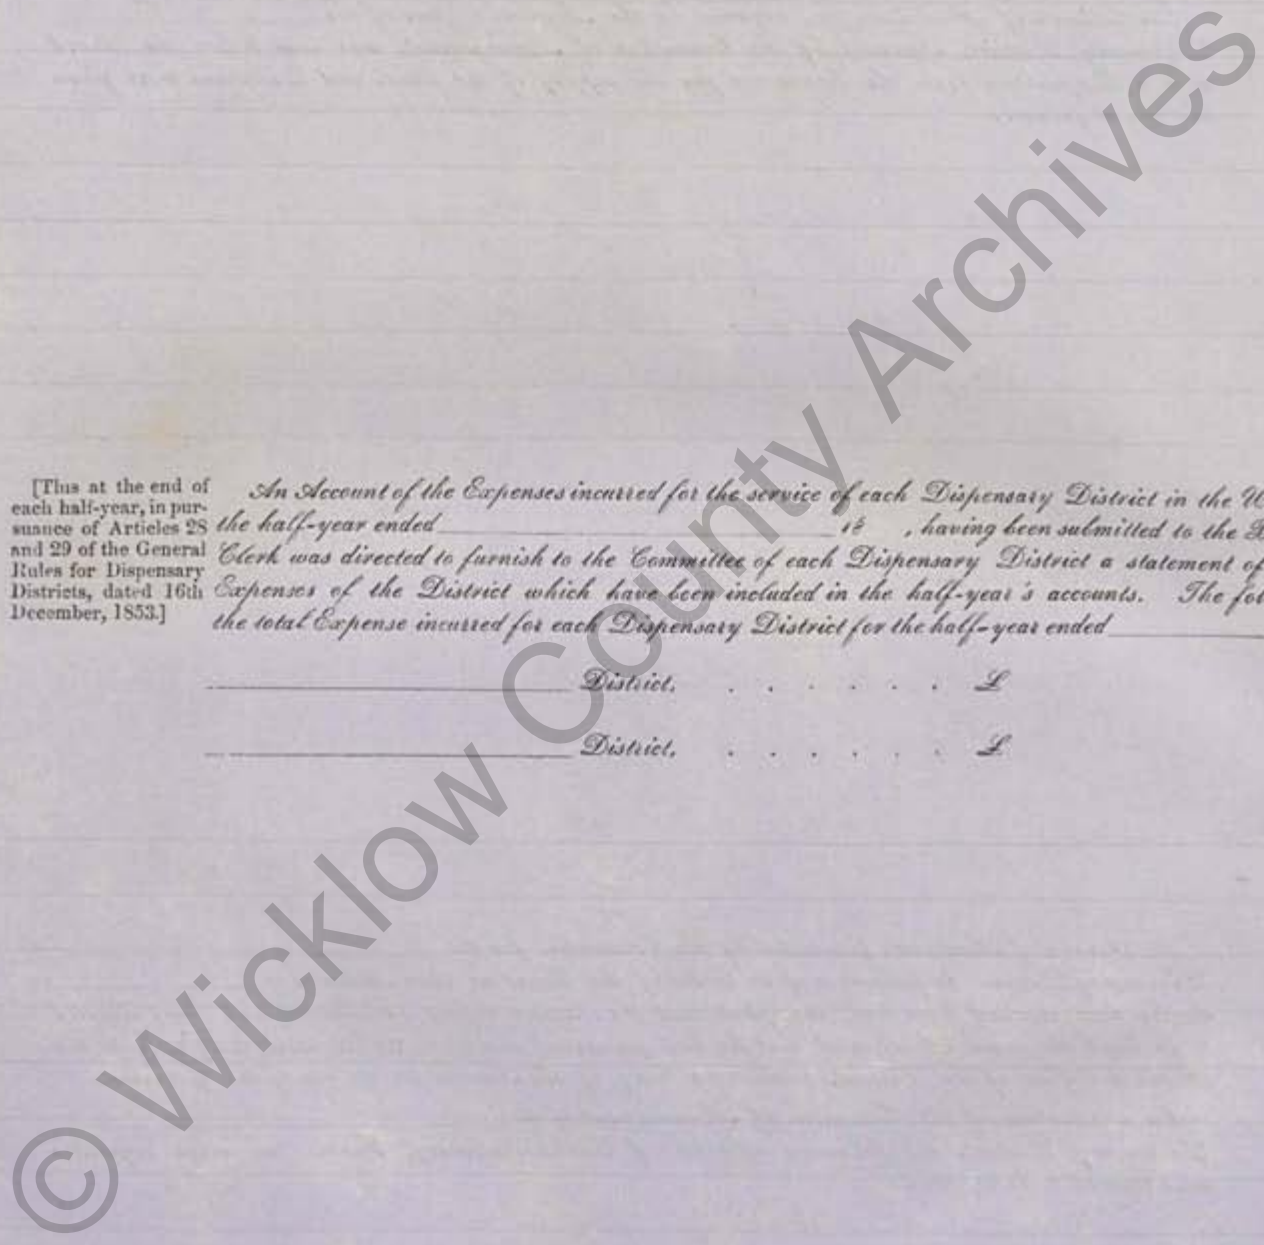 [This at the end of
each half-year, in pur-
suance of Articles 28
and 29 of the General
Rules for Dispensary
Districts, dated 16th
December, 1853.]
An Account of the Expenses incurred for the service of each Dispensary District in the U
the half-year ended 18 , having been submitted to the B
Clerk was directed to furnish to the Committee of each Dispensary District a statement of
Expenses of the District which have been included in the half-year's accounts. The fol
the total Expense incurred for each Dispensary District for the half-year ended
District, . . . . . . £
District, . . . . . . £
© Wicklow County Archives